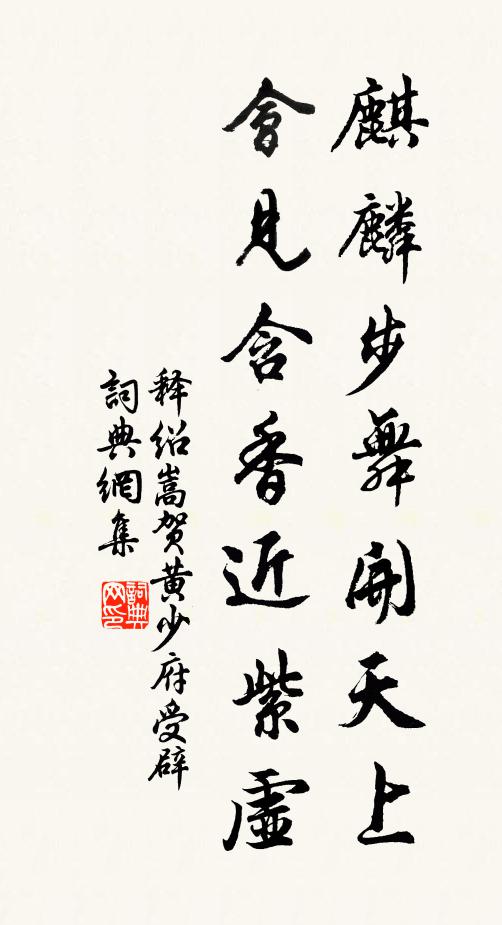 麒麟步舞開天上
會見含香近紫虛
释绍嵩贺黄少府受辟
詞典網集
詞典网印